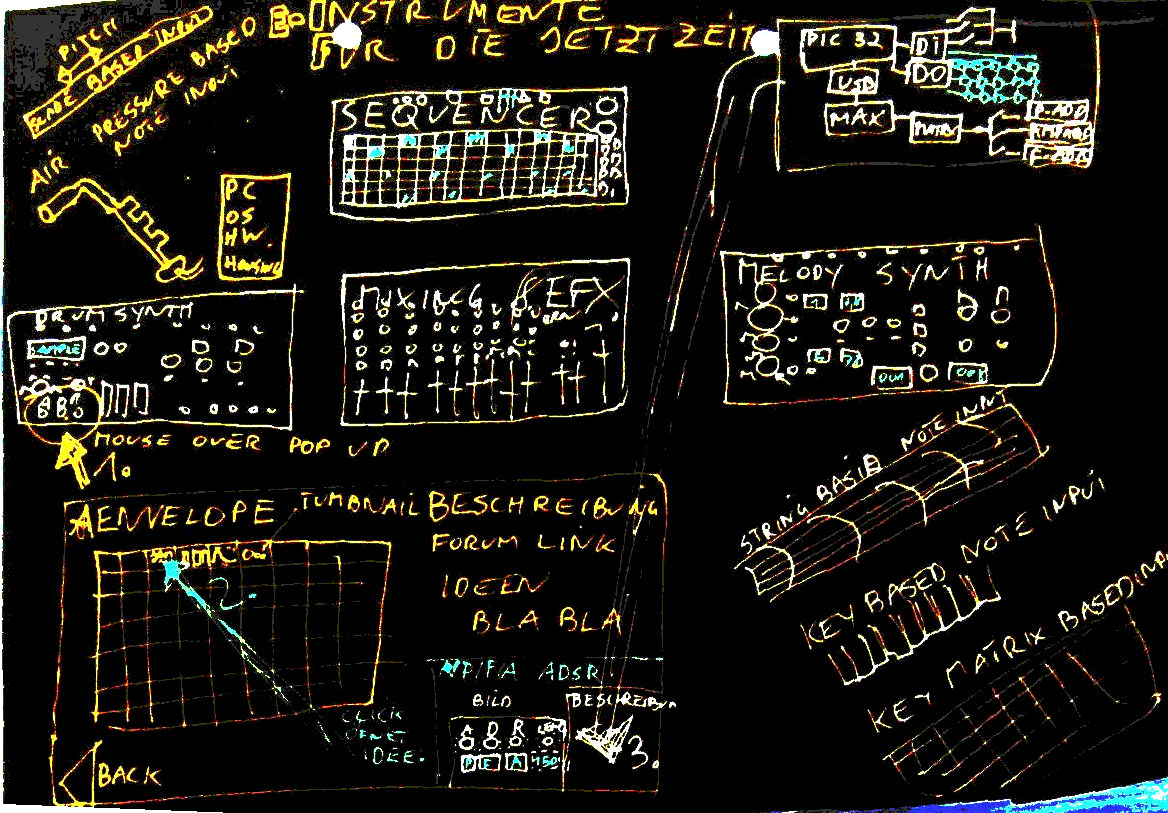 INSTRUMENTE
FÜR DIE JETZTZEIT
PITCH
SLIDE BASED INPUT
PRESSURE BASED
NOTE INPUT
AIR
PC
OS
HW.
HOUSING
SEQUENCER
PIC 32
DI
DO
USB
MAX
P-ADD
F-ADD
DRUM SYNTH
SAMPLE
MIXING & EFX
MELODY SYNTH
MOUSE OVER POP UP
1.
A ENVELOPE
TUMBNAIL
BESCHREIBUNG
FORUM LINK
IDEEN
BLA BLA
2.
CLICK
ÖFNET
IDEE.
P/F/A ADSR
BILD
BESCHREIBUN
A D R
P F A
3.
BACK
STRING BASED NOTE INPUT
KEY BASED NOTE INPUT
KEY MATRIX BASED INPU